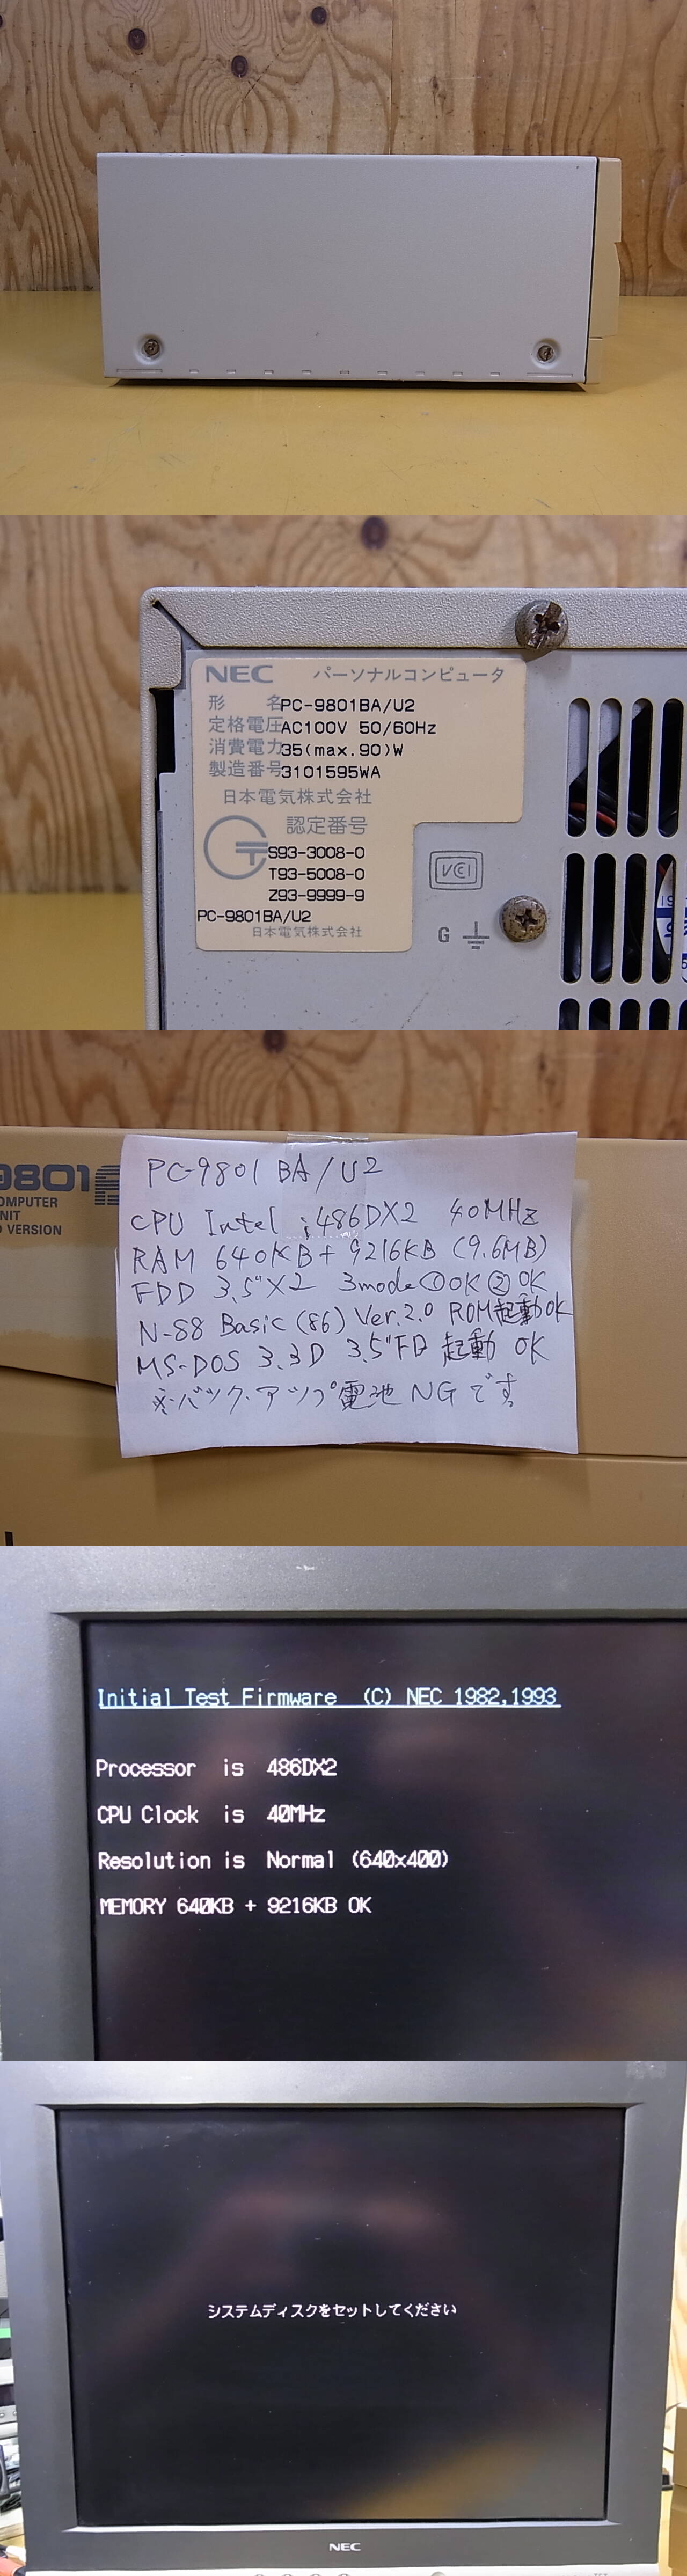 NEC パーソナルコンピュータ
形 名 PC-9801BA/U2
定格電圧 AC100V 50/60Hz
消費電力 35(max.90)W
製造番号 3101595WA
日本電気株式会社
認定番号
S93-3008-0
T93-5008-0
Z93-9999-9
PC-9801BA/U2
日本電気株式会社
VCI
G
9801
OMPUTER
NIT
VERSION
PC-9801 BA/U2
CPU Intel i486DX2 40MHz
RAM 640KB+9216KB (9.6MB)
FDD 3.5"×2 3mode ①OK ②OK
N-88 Basic (86) Ver.2.0 ROM起動OK
MS-DOS 3.3D 3.5"FD 起動 OK
※バックアップ電池NGです。
Initial Test Firmware (C) NEC 1982,1993
Processor is 486DX2
CPU Clock is 40MHz
Resolution is Normal (640x400)
MEMORY 640KB + 9216KB OK
システムディスクをセットしてください
NEC